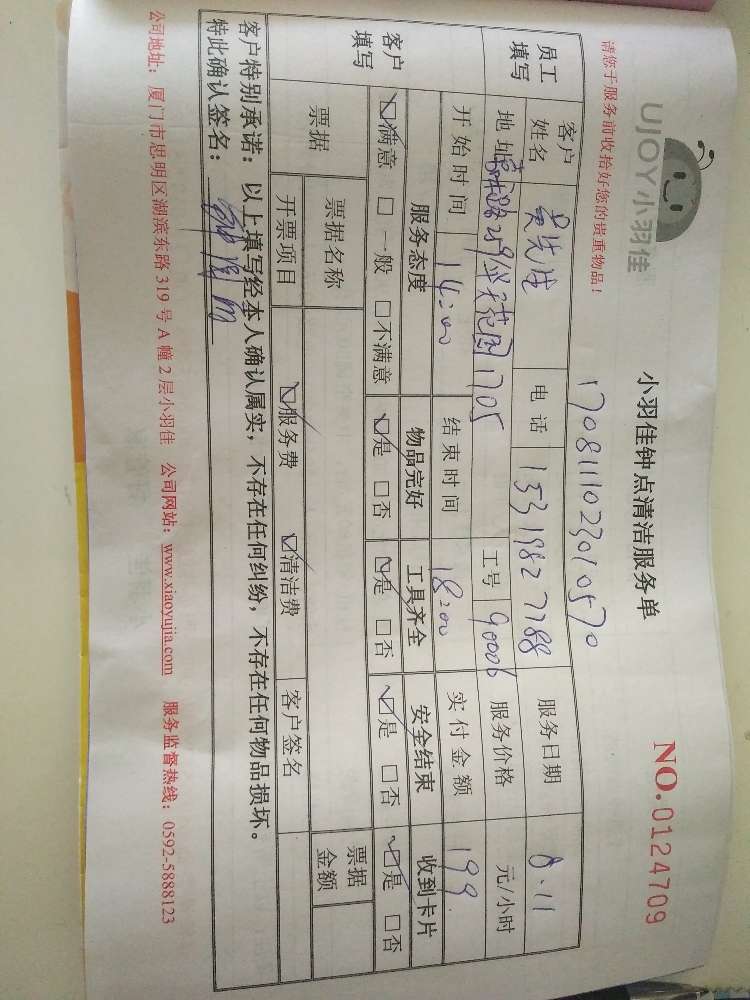 UJOY小羽佳
小羽佳钟点清洁服务单
NO.0124709
请您于服务前收拾好您的贵重物品!
1708111023010570
员工填写 客户姓名 吴先生 电话 15319827188 服务日期 8.11
地址 1705 工号 90006 服务价格 元/小时
开始时间 14:00 结束时间 18:00 实付金额 199
客户填写 服务态度 物品完好 工具齐全 安全结束 收到卡片
☑满意 □一般 □不满意 ☑是 □否 ☑是 □否 ☑是 □否 ☑是 □否
票据 票据名称 票据金额
开票项目 ☑服务费 ☑清洁费 客户签名
客户特别承诺:以上填写经本人确认属实,不存在任何纠纷,不存在任何物品损坏。
特此确认签名:
公司地址:厦门市思明区湖滨东路319号A幢2层小羽佳 公司网站:www.xiaoyujia.com 服务监督热线:0592-5888123